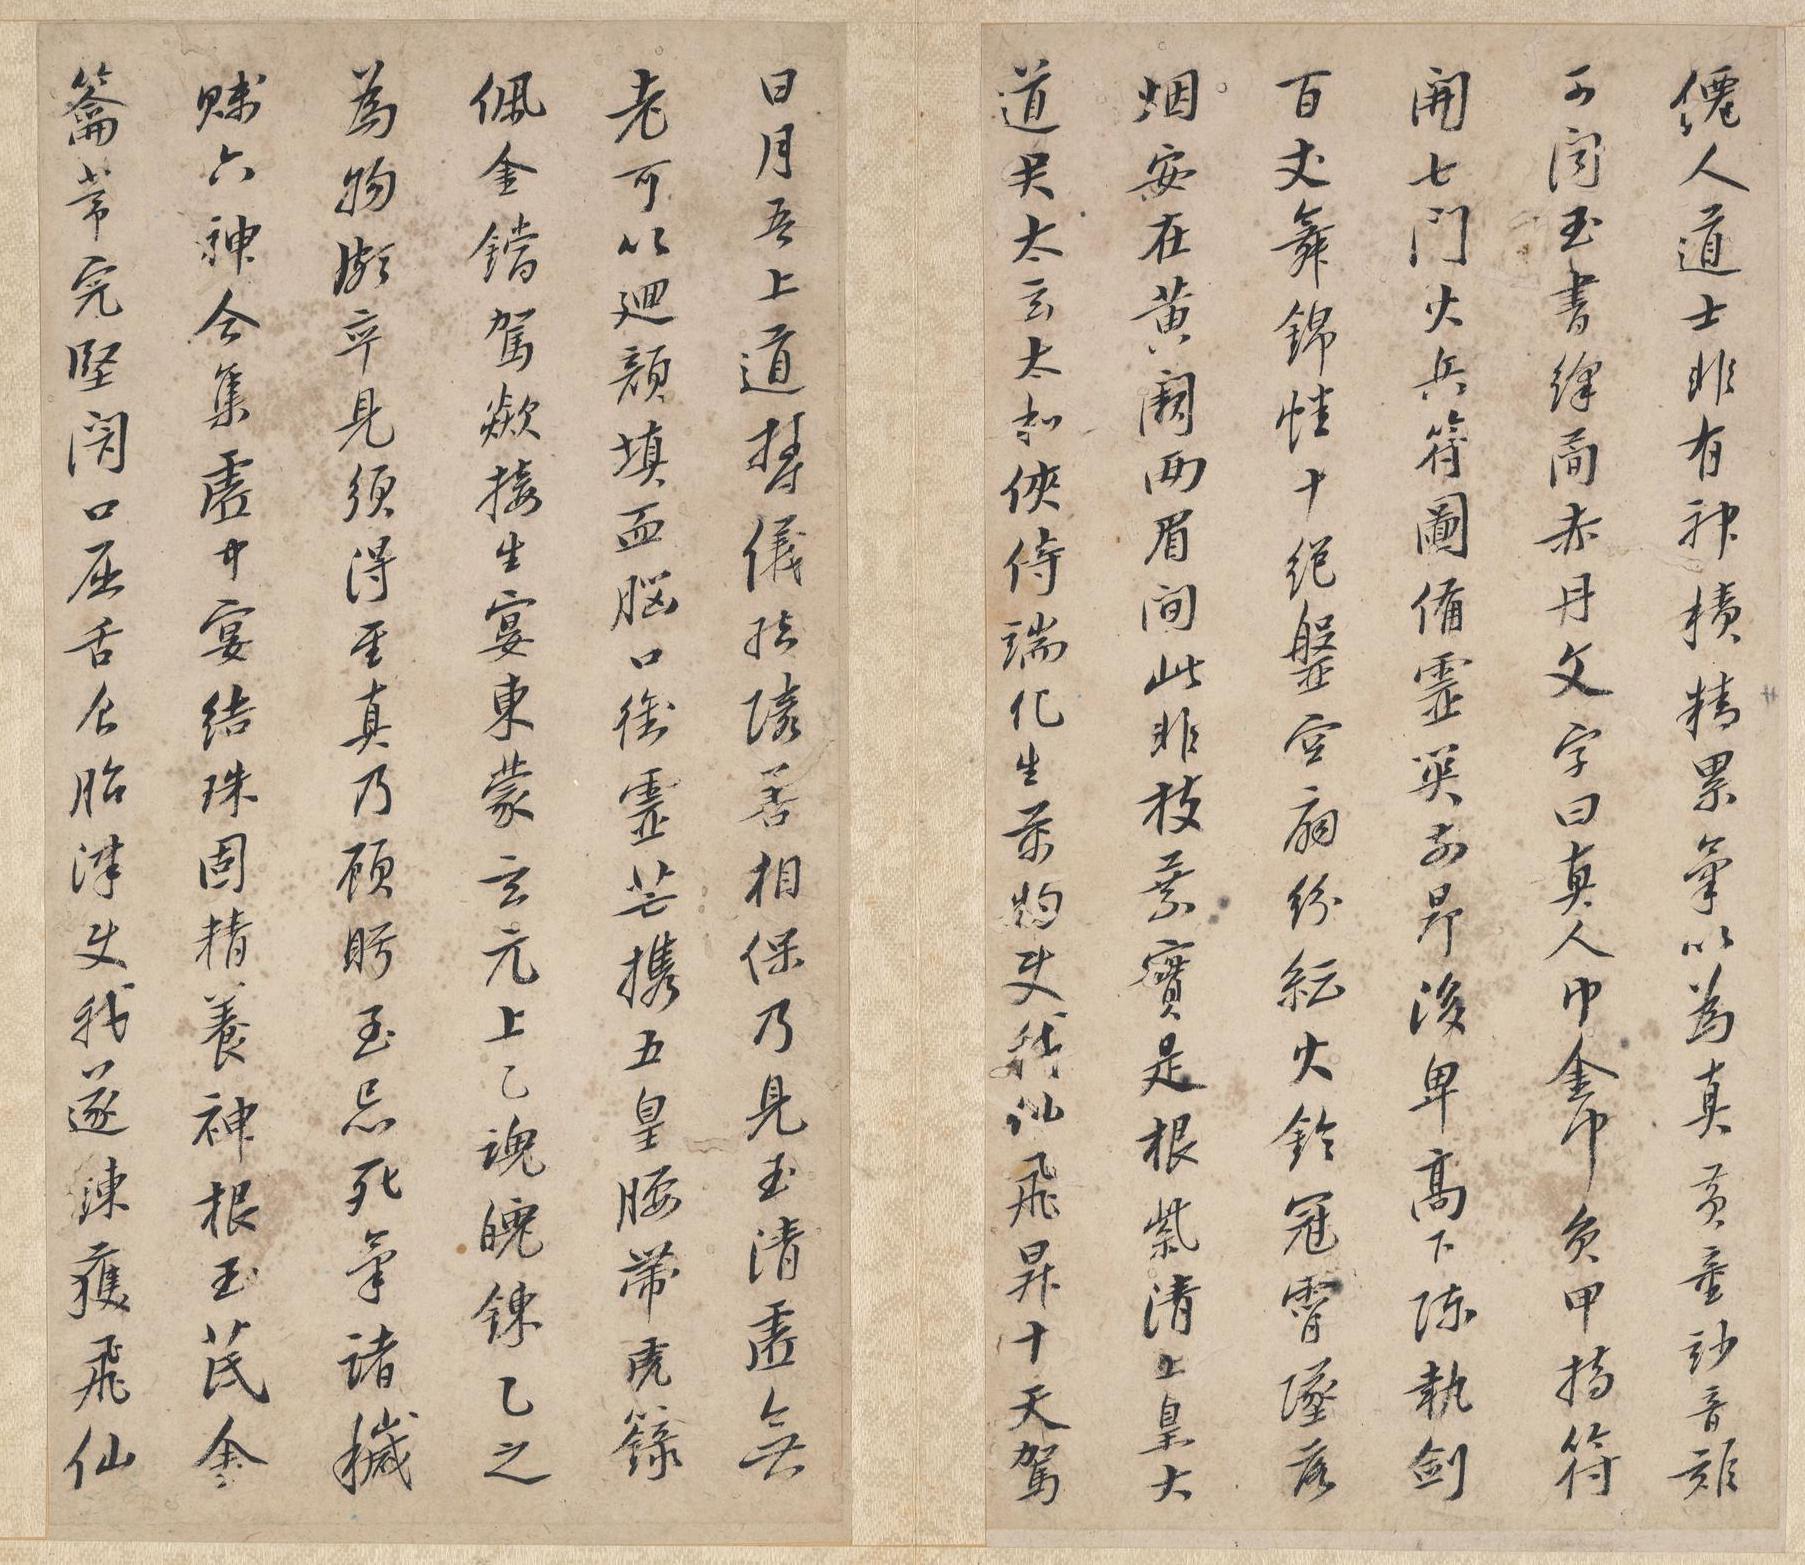 僊人道士非有神積精累氣以爲真黃童妙音難
可聞玉書絳簡赤丹文字曰真人巾金巾負甲持符
開七門火兵符圖備靈關前昂後卑高下陳執劍
百丈舞錦幡十絕盤空扇紛紜火鈴冠霄墜落
烟安在黃闕兩眉間此非枝葉實是根紫清上皇大
道君太玄太和俠侍端化生萬物使我仙飛昇十天駕
日月吾上道
儀
善相保乃見玉清虛無
老可以迴顏填血腦口銜靈芒攜五皇腰帶虎籙
佩金鐺駕歘接生宴東蒙玄元上乙魂魄鍊乙之
為物頗卒見須得至真乃顧眄至忌死氣諸穢
賤六神合集虛中宴結珠固精養神根玉茋金
籥常完堅閉口屈舌食胎津使我遂鍊獲飛仙